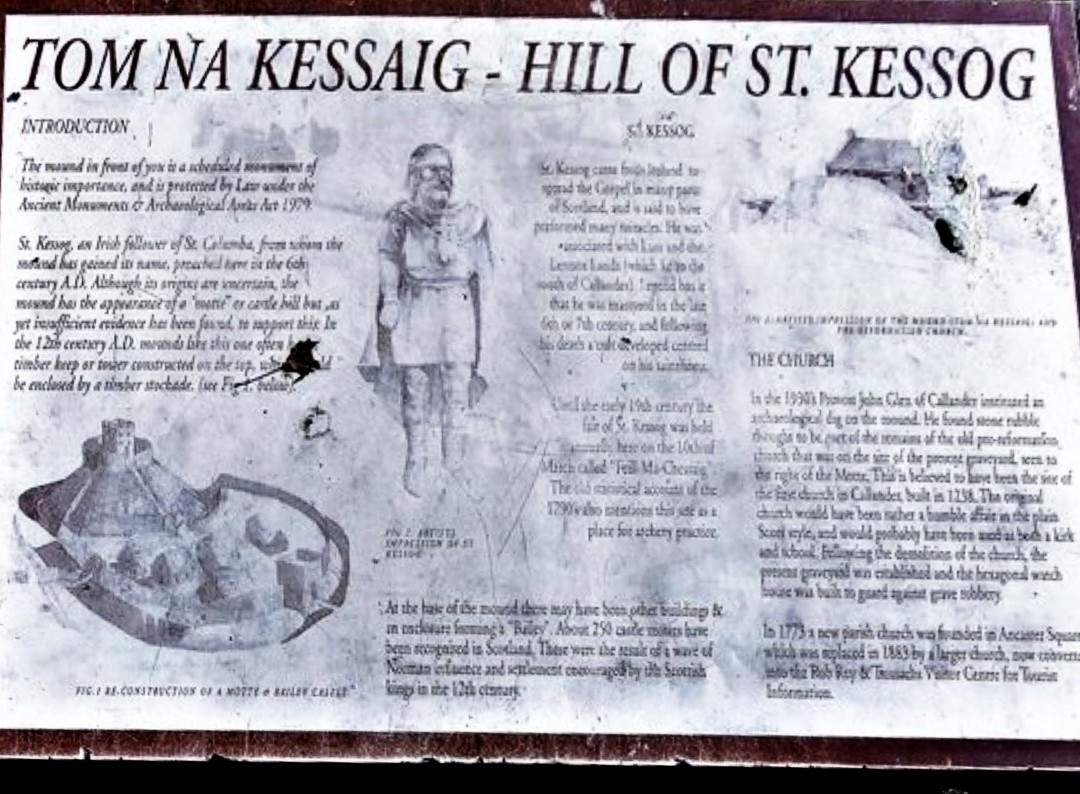 TOM NA KESSAIG - HILL OF ST. KESSOG
INTRODUCTION
The mound in front of you is a scheduled monument of
historic importance, and is protected by Law under the
Ancient Monuments & Archaeological Areas Act 1979.
St. Kessog, an Irish follower of St. Columba, from whom the
mound has gained its name, preached here in the 6th
century A.D. Although its origins are uncertain, the
mound has the appearance of a "motte" or castle hill but as
yet insufficient evidence has been found, to support this. In
the 12th century A.D. mounds like this one often
timber keep or tower constructed on the top,
be enclosed by a timber stockade. (see Fig. 1. below).
FIG.1 RE-CONSTRUCTION OF A MOTTE & BAILEY CASTLE
FIG 2: ARTISTS
IMPRESSION OF ST
KESSOG
At the base of the mound there may have been other buildings &
an enclosure forming a "Bailey". About 250 castle mottes have
been recognised in Scotland. These were the result of a wave of
Norman influence and settlement encouraged by the Scottish
kings in the 12th century.
ST. KESSOG
St. Kessog came from Ireland to
spread the Gospel in many parts
of Scotland, and is said to have
performed many miracles. He was
associated with Luss and the
Lennox Lands (which lie to the
south of Callander). Legend has it
that he was martyred in the late
6th or 7th century, and following
his death a cult developed centred
on his
Until the early 19th century the
fair of St. Kessog was held
annually here on the 10th of
March called "Feill-Ma-Chessaig".
The old statistical account of the
1790's also mentions this site as a
place for archery practice.
ARTISTS IMPRESSION OF THE MOUND (TOM NA KESSAIG) AND
PRE-REFORMATION CHURCH.
THE CHURCH
In the 1930's Provost John Glen of Callander instituted an
archaeological dig on the mound. He found some rubble
thought to be part of the remains of the old pre-reformation
church that was on the site of the present graveyard, seen to
the right of the Motte. This is believed to have been the site of
the first church in Callander, built in 1238. The original
church would have been rather a humble affair in the plain
Scots style, and would probably have been used as both a kirk
and school. Following the demolition of the church, the
present graveyard was established and the hexagonal watch
house was built to guard against grave robbery.
In 1773 a new parish church was founded in Ancaster Square
which was replaced in 1883 by a larger church, now
into the Rob Roy & Trossachs Visitor Centre for Tourist
Information.